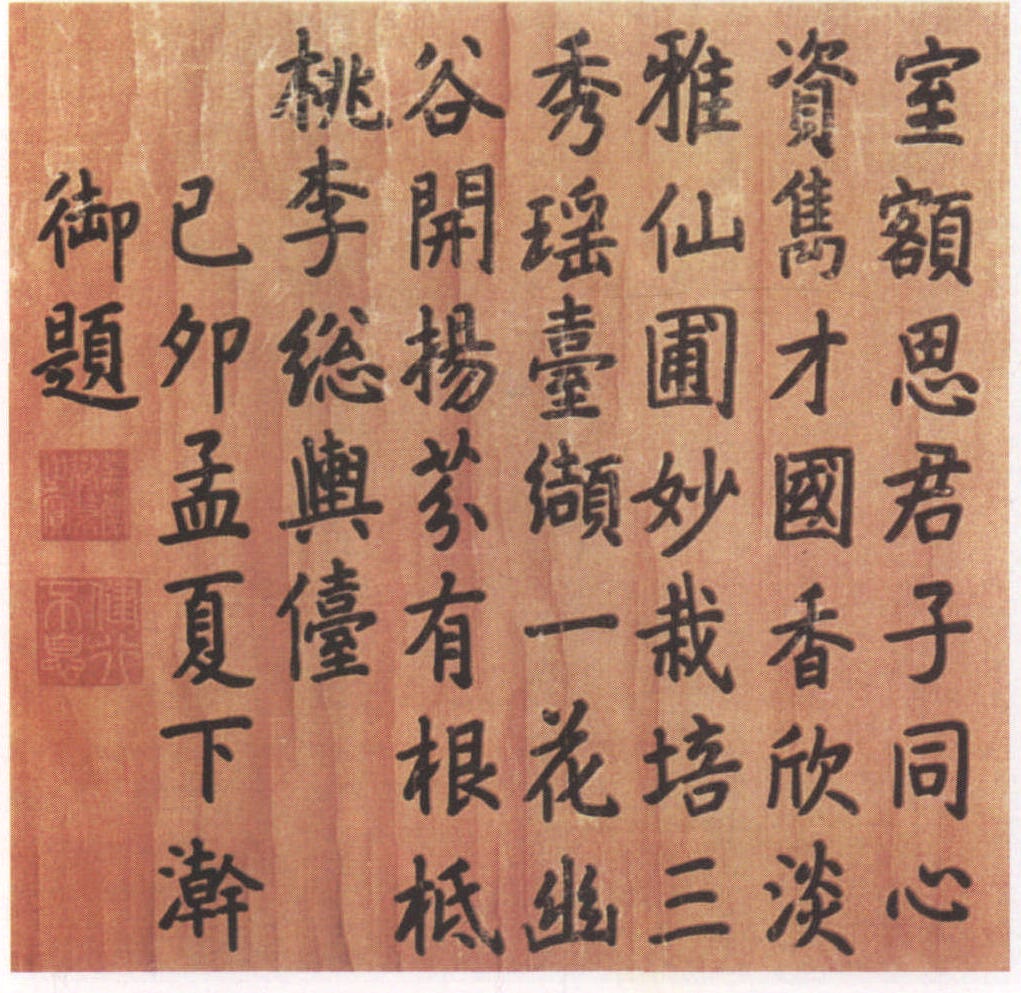 室額思君子同心
資雋才國香欣淡
雅仙圃妙栽培三
秀瑶臺纈一花幽
谷開揚芬有根柢
桃李総輿儓
己卯孟夏下澣
御題